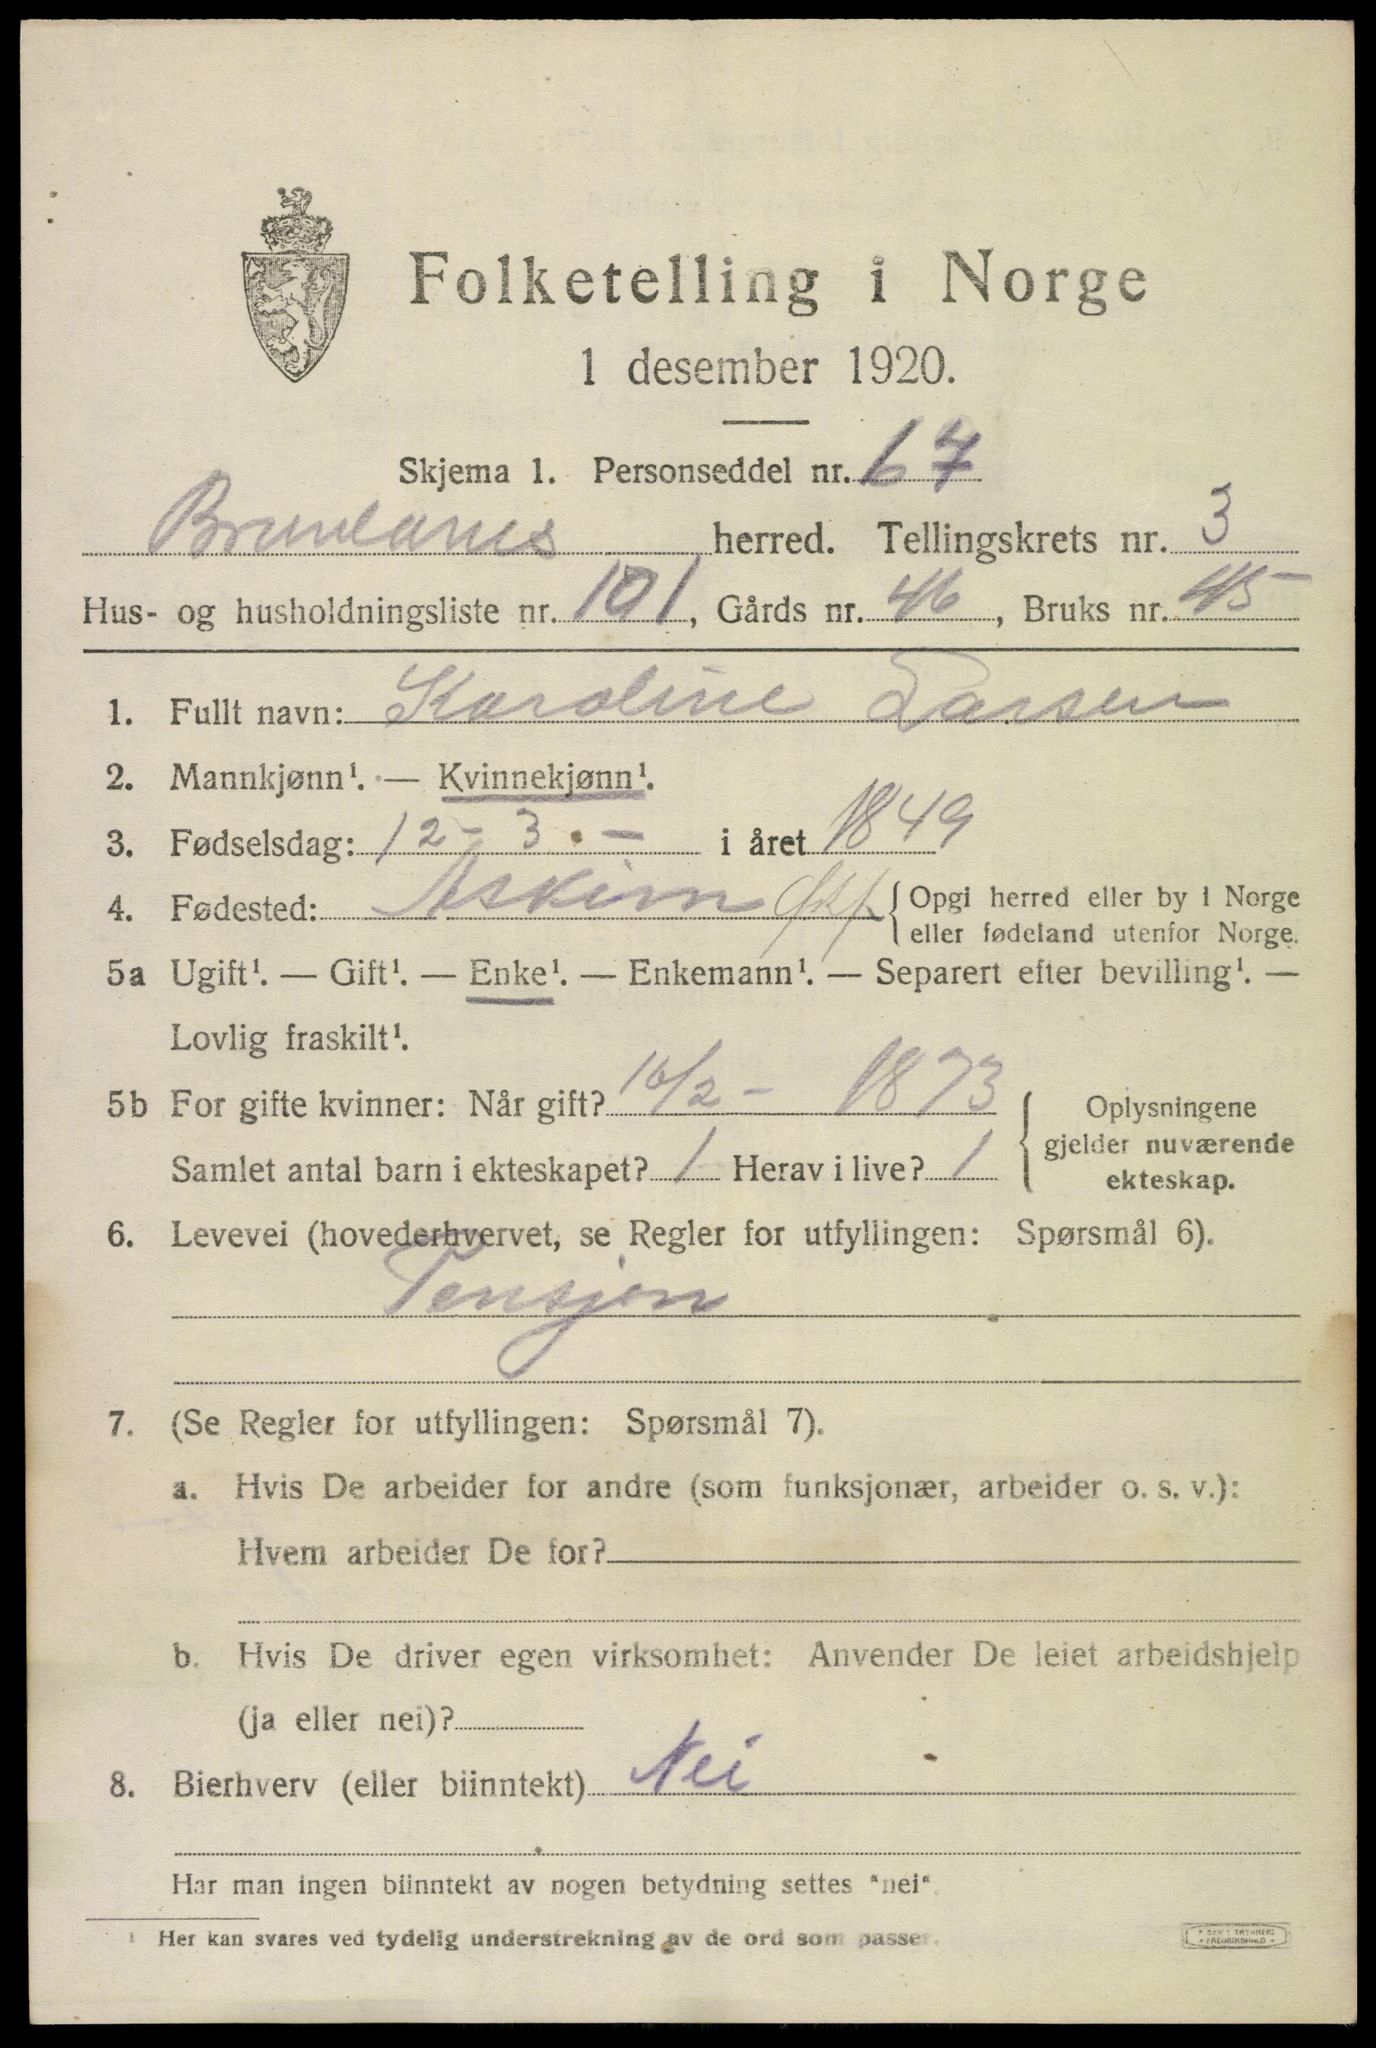 Folketelling i Norge
1 desember 1920.
Skjema 1. Personseddel nr. 67
Brunlanes herred. Tellingskrets nr. 3
Hus- og husholdningsliste nr. 101, Gårds nr. 46, Bruks nr. 45
1. Fullt navn: Karoline Larsen
2. Mannkjønn¹. — Kvinnekjønn¹.
3. Fødselsdag: 12 - 3 - i året 1849
4. Fødested: Askim Opgi herred eller by i Norge
eller fødeland utenfor Norge.
5a Ugift¹. — Gift¹. — Enke¹. — Enkemann¹. — Separert efter bevilling¹. —
Lovlig fraskilt¹.
5b For gifte kvinner: Når gift? 16/2 - 1873
Samlet antal barn i ekteskapet? 1 Herav i live? 1
Oplysningene
gjelder nuværende
ekteskap.
6. Levevei (hovederhvervet, se Regler for utfyllingen: Spørsmål 6).
Pensjon
7. (Se Regler for utfyllingen: Spørsmål 7).
a. Hvis De arbeider for andre (som funksjonær, arbeider o. s. v.):
Hvem arbeider De for?
b. Hvis De driver egen virksomhet: Anvender De leiet arbeidshjelp
(ja eller nei)?
8. Bierhverv (eller biinntekt) Nei
Har man ingen biinntekt av nogen betydning settes "nei".
¹ Her kan svares ved tydelig understrekning av de ord som passer.